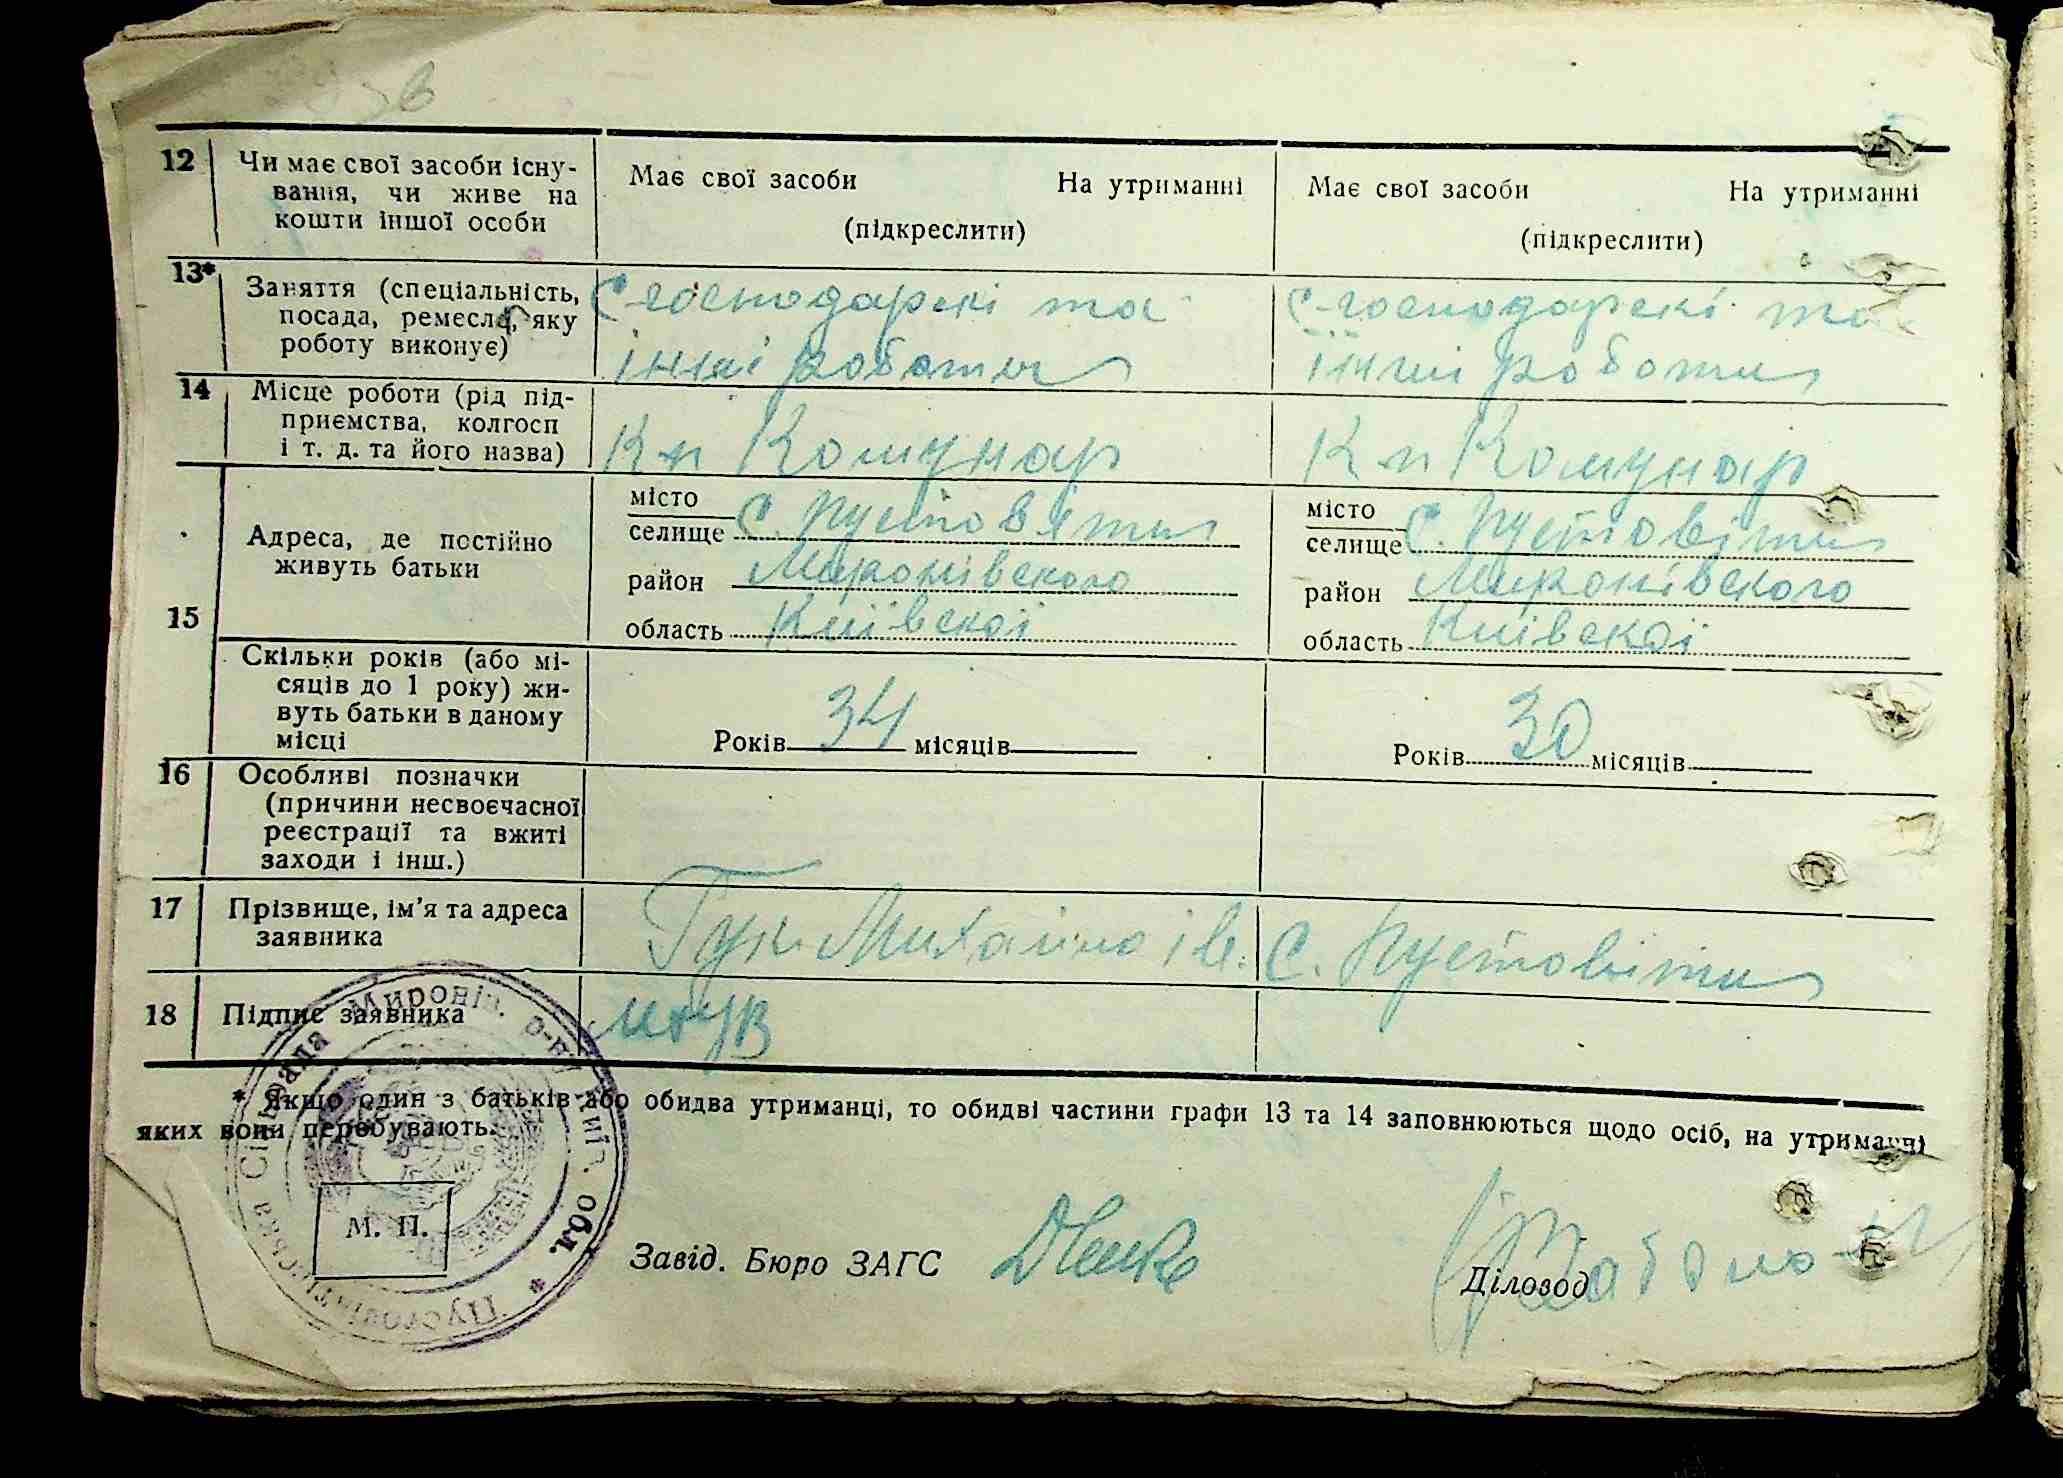 12 Чи має свої засоби існу-
вання, чи живе на
кошти іншої особи
Має свої засоби На утриманні
(підкреслити)
Має свої засоби На утриманні
(підкреслити)
13* Заняття (спеціальність,
посада, ремесла, яку
роботу виконує)
С-господарскі та
інші роботи
с-господарскі та
інші роботи
14 Місце роботи (рід під-
приємства, колгосп
і т. д. та його назва)
К-п Комунар
К-п Комунар
15 Адреса, де постійно
живуть батьки
місто
селище с. Пустовіти
район Миронівского
область Київскої
місто
селище с. Пустовіти
район Миронівского
область Київскої
Скільки років (або мі-
сяців до 1 року) жи-
вуть батьки в даному
місці
Років 34 місяців
Років 30 місяців
16 Особливі позначки
(причини несвоєчасної
реєстрації та вжиті
заходи і інш.)
17 Прізвище, ім'я та адреса
заявника
Гук Михайло Ів. с. Пустовіти
18 Підпис заявника
* Якщо один з батьків або обидва утриманці, то обидві частини графи 13 та 14 заповнюються щодо осіб, на утриманні
яких вони перебувають.
Пустовітська Сільрада Миронів. р-ну Київ. обл. *
М. П.
Завід. Бюро ЗАГС
Діловод